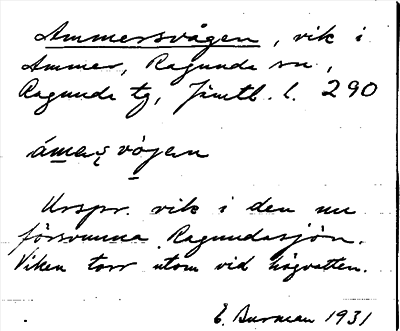 Ammersvågen, vik i
Ammer, Ragunda sn,
Ragunda tg, Jämtl. l. 290
vågen
Urspr. vik i den nu
försvunna Ragundasjön.
Viken torr utom vid högvatten.
E. Burman 1931